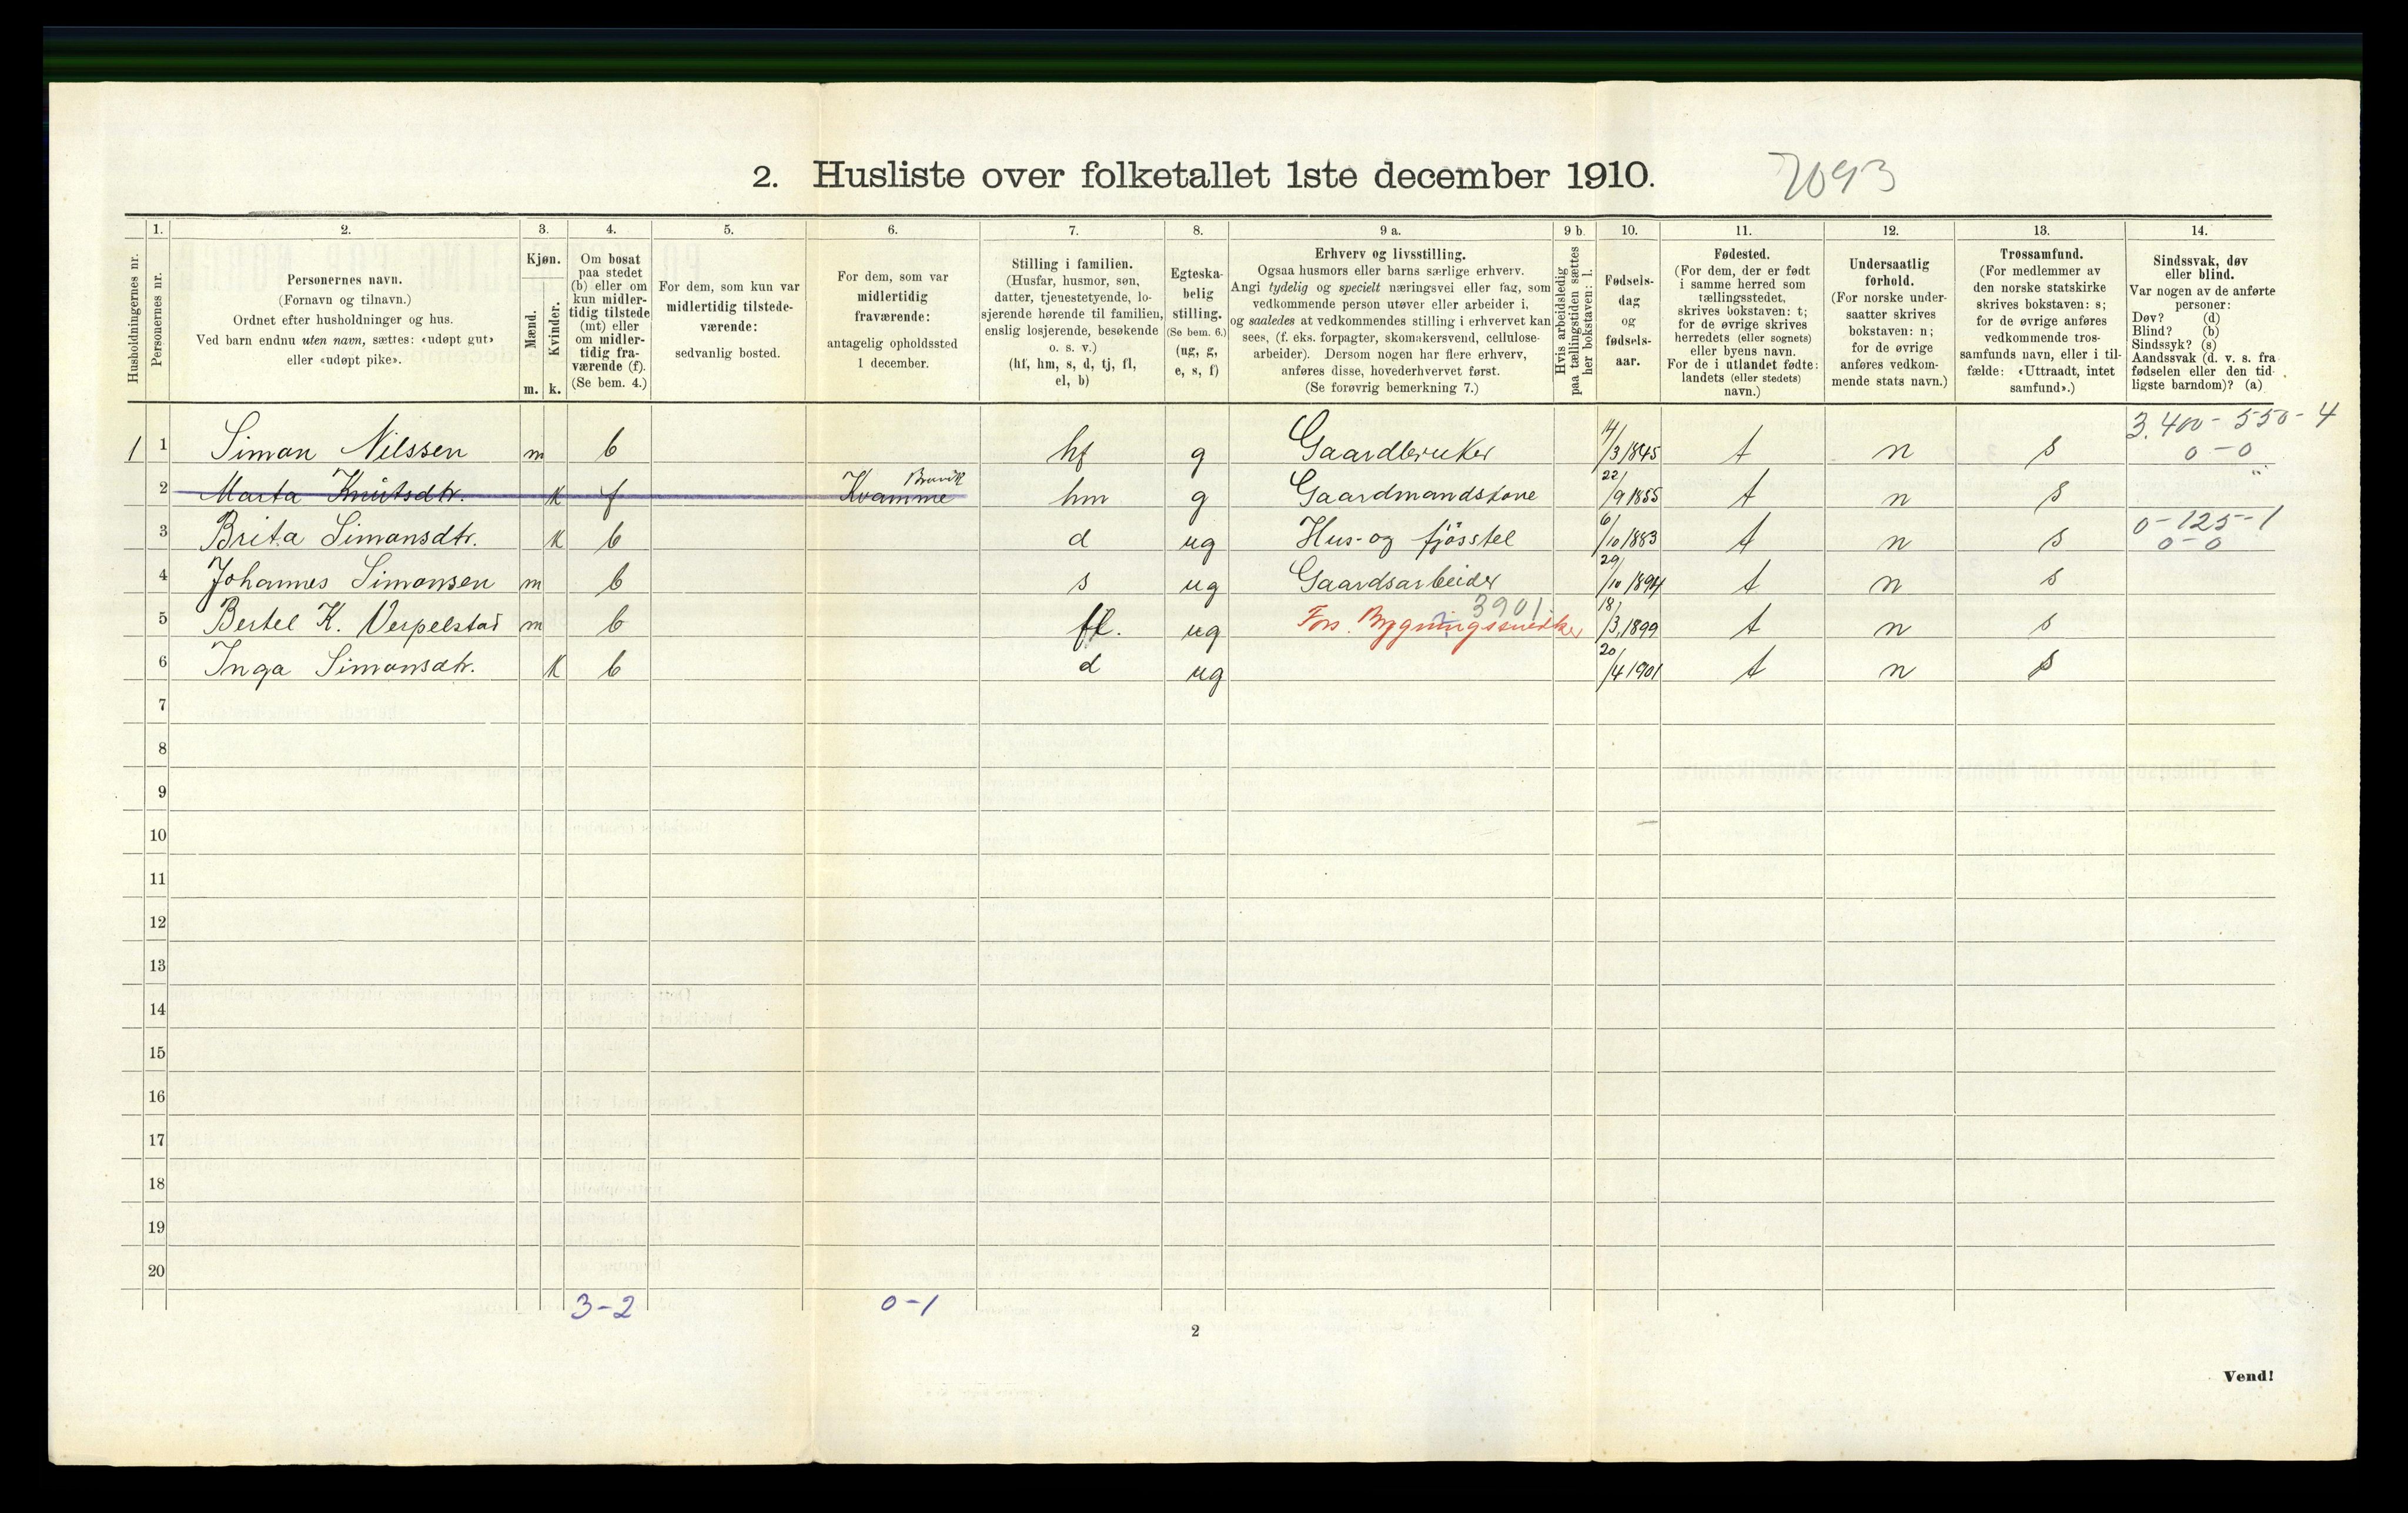 2. Husliste over folketallet 1ste december 1910. 7093
Husholdningernes nr.
1. Personernes nr.
2. Personernes navn. (Fornavn og tilnavn.) Ordnet efter husholdninger og hus. Ved barn endnu uten navn, sættes: «udøpt gut» eller «udøpt pike».
3. Kjøn. Mænd. m. Kvinder. k.
4. Om bosat paa stedet (b) eller om kun midlertidig tilstede (mt) eller om midlertidig fraværende (f). (Se bem. 4.)
5. For dem, som kun var midlertidig tilstedeværende: sedvanlig bosted.
6. For dem, som var midlertidig fraværende: antagelig opholdssted 1 december.
7. Stilling i familien. (Husfar, husmor, søn, datter, tjenestetyende, losjerende hørende til familien, enslig losjerende, besøkende o. s. v.) (hf, hm, s, d, tj, fl, el, b)
8. Egteskabelig stilling. (Se bem. 6.) (ug, g, e, s, f)
9 a. Erhverv og livsstilling. Ogsaa husmors eller barns særlige erhverv. Angi tydelig og specielt næringsvei eller fag, som vedkommende person utøver eller arbeider i, og saaledes at vedkommendes stilling i erhvervet kan sees, (f. eks. forpagter, skomakersvend, cellulosearbeider). Dersom nogen har flere erhverv, anføres disse, hovederhvervet først. (Se forøvrig bemerkning 7.)
9 b. Hvis arbeidsledig paa tællingstiden sættes her bokstaven: l.
10. Fødselsdag og fødselsaar.
11. Fødested. (For dem, der er født i samme herred som tællingsstedet, skrives bokstaven: t; for de øvrige skrives herredets (eller sognets) eller byens navn. For de i utlandet fødte: landets (eller stedets) navn.)
12. Undersaatlig forhold. (For norske undersaatter skrives bokstaven: n; for de øvrige anføres vedkommende stats navn.)
13. Trossamfund. (For medlemmer av den norske statskirke skrives bokstaven: s; for de øvrige anføres vedkommende trossamfunds navn, eller i tilfælde: «Uttraadt, intet samfund».)
14. Sindssvak, døv eller blind. Var nogen av de anførte personer: Døv? (d) Blind? (b) Sindssyk? (s) Aandssvak (d. v. s. fra fødselen eller den tidligste barndom)? (a)
1 1 Simon Nilssen m b hf g Gaardbruker 14/3 1845 t n s 3.400-550-4 0-0
2 Marta Knutsdtr. k f Kvamme hm g Gaardmandskone 22/9 1855 t n s
3 Brita Simonsdtr. k b d ug Hus- og fjösstel 6/10 1883 t n s 0-125-1 0-0
4 Johannes Simonsen m b s ug Gaardsarbeider 29/10 1894 t n s
5 Bertel K. Verpelstad m b fl. ug Fors. Bygningssnedker 3901 18/3 1899 t n s
6 Inga Simonsdtr. k b d ug 20/4 1901 t n s
7
8
9
10
11
12
13
14
15
16
17
18
19
20
3-2 0-1
2
Vend!